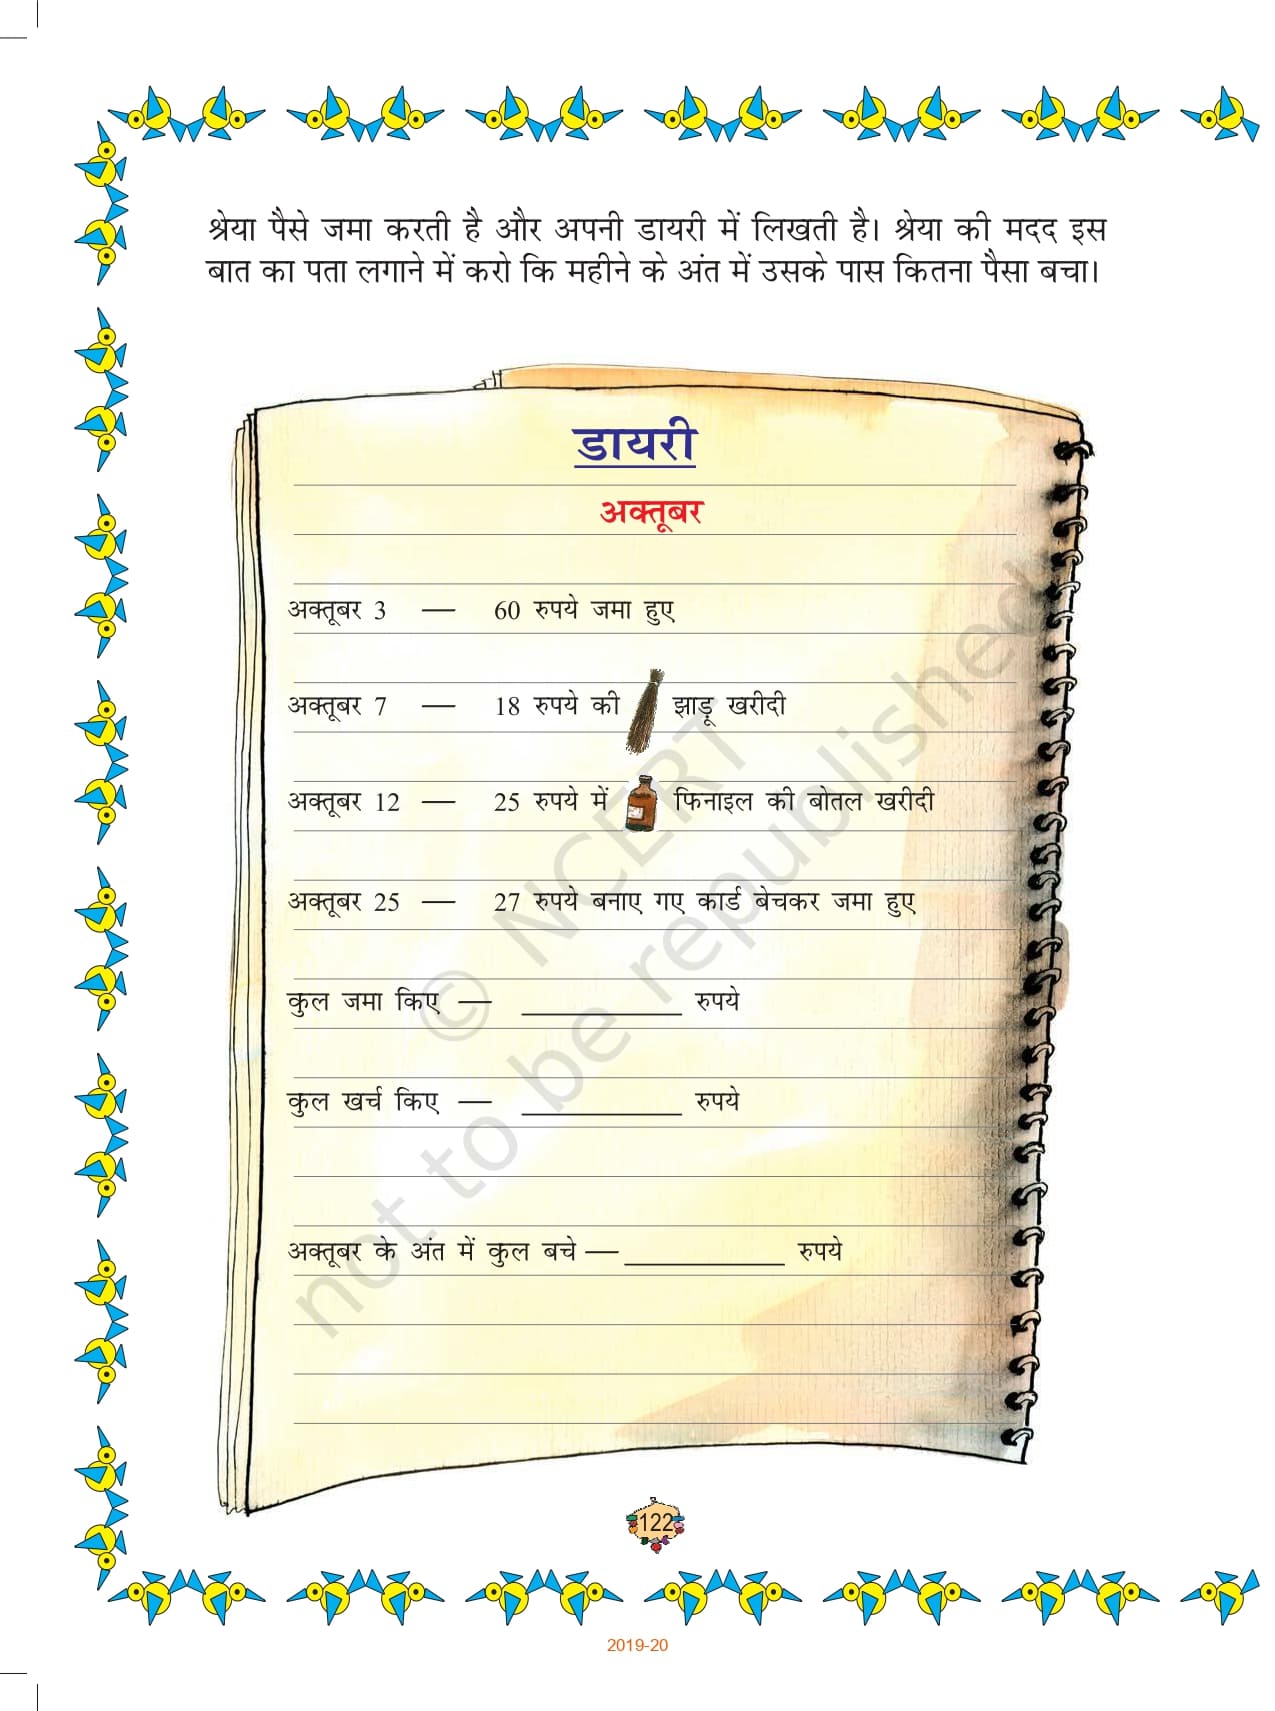 श्रेया पैसे जमा करती है और अपनी डायरी में लिखती है। श्रेया की मदद इस
बात का पता लगाने में करो कि महीने के अंत में उसके पास कितना पैसा बचा।
डायरी
अक्तूबर
अक्तूबर 3 — 60 रुपये जमा हुए
अक्तूबर 7 — 18 रुपये की झाड़ू खरीदी
अक्तूबर 12 — 25 रुपये में फिनाइल की बोतल खरीदी
अक्तूबर 25 — 27 रुपये बनाए गए कार्ड बेचकर जमा हुए
कुल जमा किए — ____________ रुपये
कुल खर्च किए — ____________ रुपये
अक्तूबर के अंत में कुल बचे — ____________ रुपये
© NCERT
not to be republished
122
2019-20